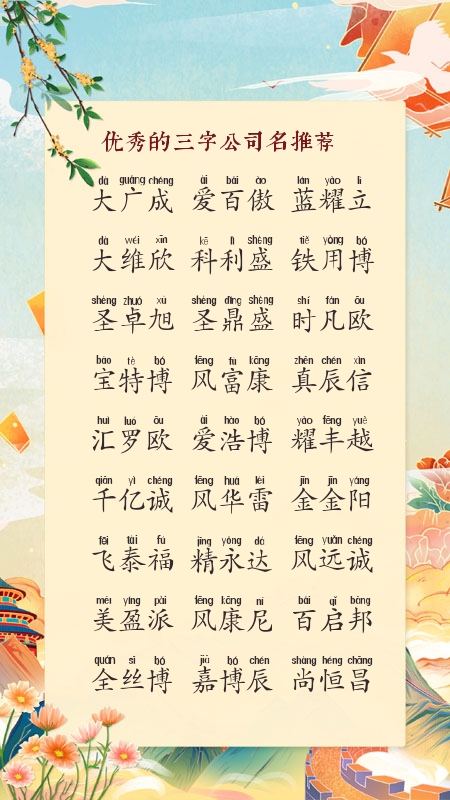 优秀的三字公司名推荐
dà guǎng chéng ài bǎi ào lán yào lì
大广成 爱百傲 蓝耀立
dà wéi xīn kē lì shèng tiě yòng bó
大维欣 科利盛 铁用博
shèng zhuó xù shèng dǐng shèng shí fán ōu
圣卓旭 圣鼎盛 时凡欧
bǎo tè bó fēng fù kāng zhēn chén xìn
宝特博 风富康 真辰信
huì luó ōu ài hào bó yào fēng yuè
汇罗欧 爱浩博 耀丰越
qiān yì chéng fēng huá léi jīn jīn yáng
千亿诚 风华雷 金金阳
fēi tài fú jīng yǒng dá fēng yuǎn chéng
飞泰福 精永达 风远诚
měi yíng pài fēng kāng ní bǎi qǐ bāng
美盈派 风康尼 百启邦
quán sī bó jiā bó chén shàng héng chāng
全丝博 嘉博辰 尚恒昌